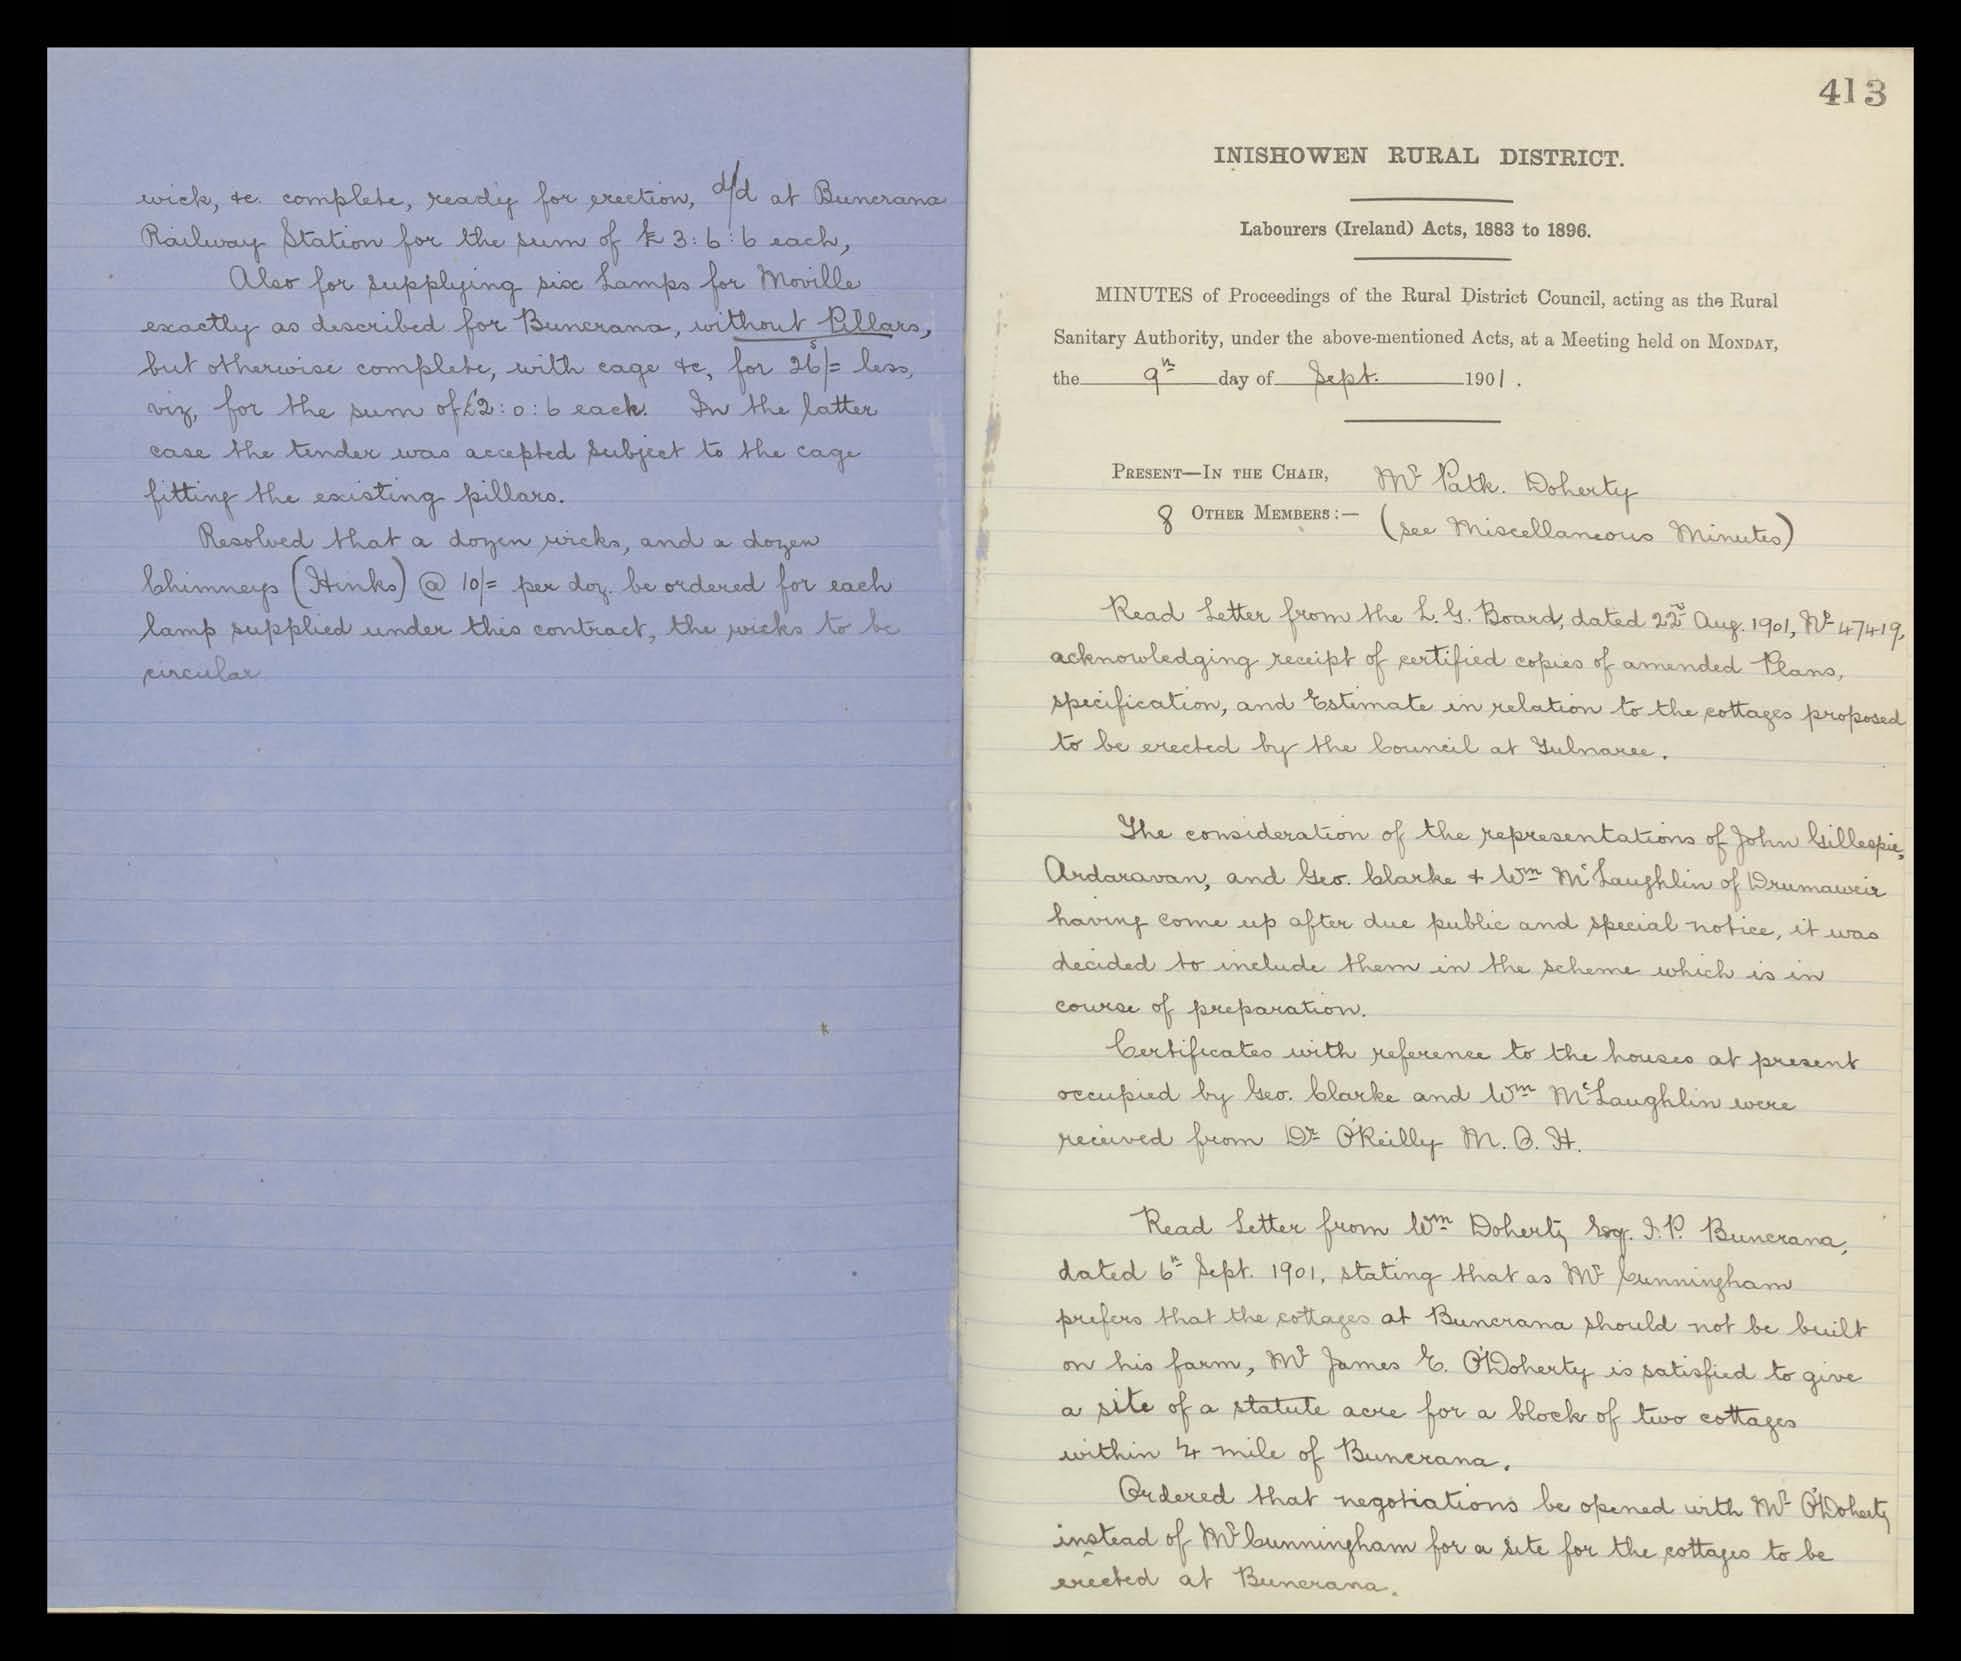 wick, &c. complete, ready for erection, d/d at Buncrana
Railway Station for the sum of £3:6:6 each,
Also for supplying six Lamps for Moville
exactly as described for Buncrana, without Pillars,
but otherwise complete, with cage &c, for 26s/= less,
viz, for the sum of £2:0:6 each. In the latter
case the tender was accepted subject to the cage
fitting the existing pillars.
Resolved that a dozen wicks, and a dozen
Chimneys (Hinks) @ 10/= per doz. be ordered for each
lamp supplied under this contract, the wicks to be
circular
413
INISHOWEN RURAL DISTRICT.
Labourers (Ireland) Acts, 1883 to 1896.
MINUTES of Proceedings of the Rural District Council, acting as the Rural
Sanitary Authority, under the above-mentioned Acts, at a Meeting held on MONDAY,
the 9th day of Sept. 1901.
PRESENT—IN THE CHAIR, Mr Patk. Doherty
8 OTHER MEMBERS:— (see Miscellaneous Minutes)
Read Letter from the L. G. Board, dated 22nd Aug. 1901, No 47419,
acknowledging receipt of certified copies of amended Plans,
specification, and Estimate in relation to the cottages proposed
to be erected by the Council at Tulnaree.
The consideration of the representations of John Gillespie,
Ardaravan, and Geo. Clarke & Wm McLaughlin of Drumaweir
having come up after due public and special notice, it was
decided to include them in the scheme which is in
course of preparation.
Certificates with reference to the houses at present
occupied by Geo. Clarke and Wm McLaughlin were
received from Dr O'Reilly M. O. H.
Read Letter from Wm Doherty Esq. J. P. Buncrana,
dated 6th Sept. 1901, stating that as Mr Cunningham
prefers that the cottages at Buncrana should not be built
on his farm, Mr James E. O'Doherty is satisfied to give
a site of a statute acre for a block of two cottages
within 1/4 mile of Buncrana.
Ordered that negotiations be opened with Mr O'Doherty
instead of Mr Cunningham for a site for the cottages to be
erected at Buncrana.